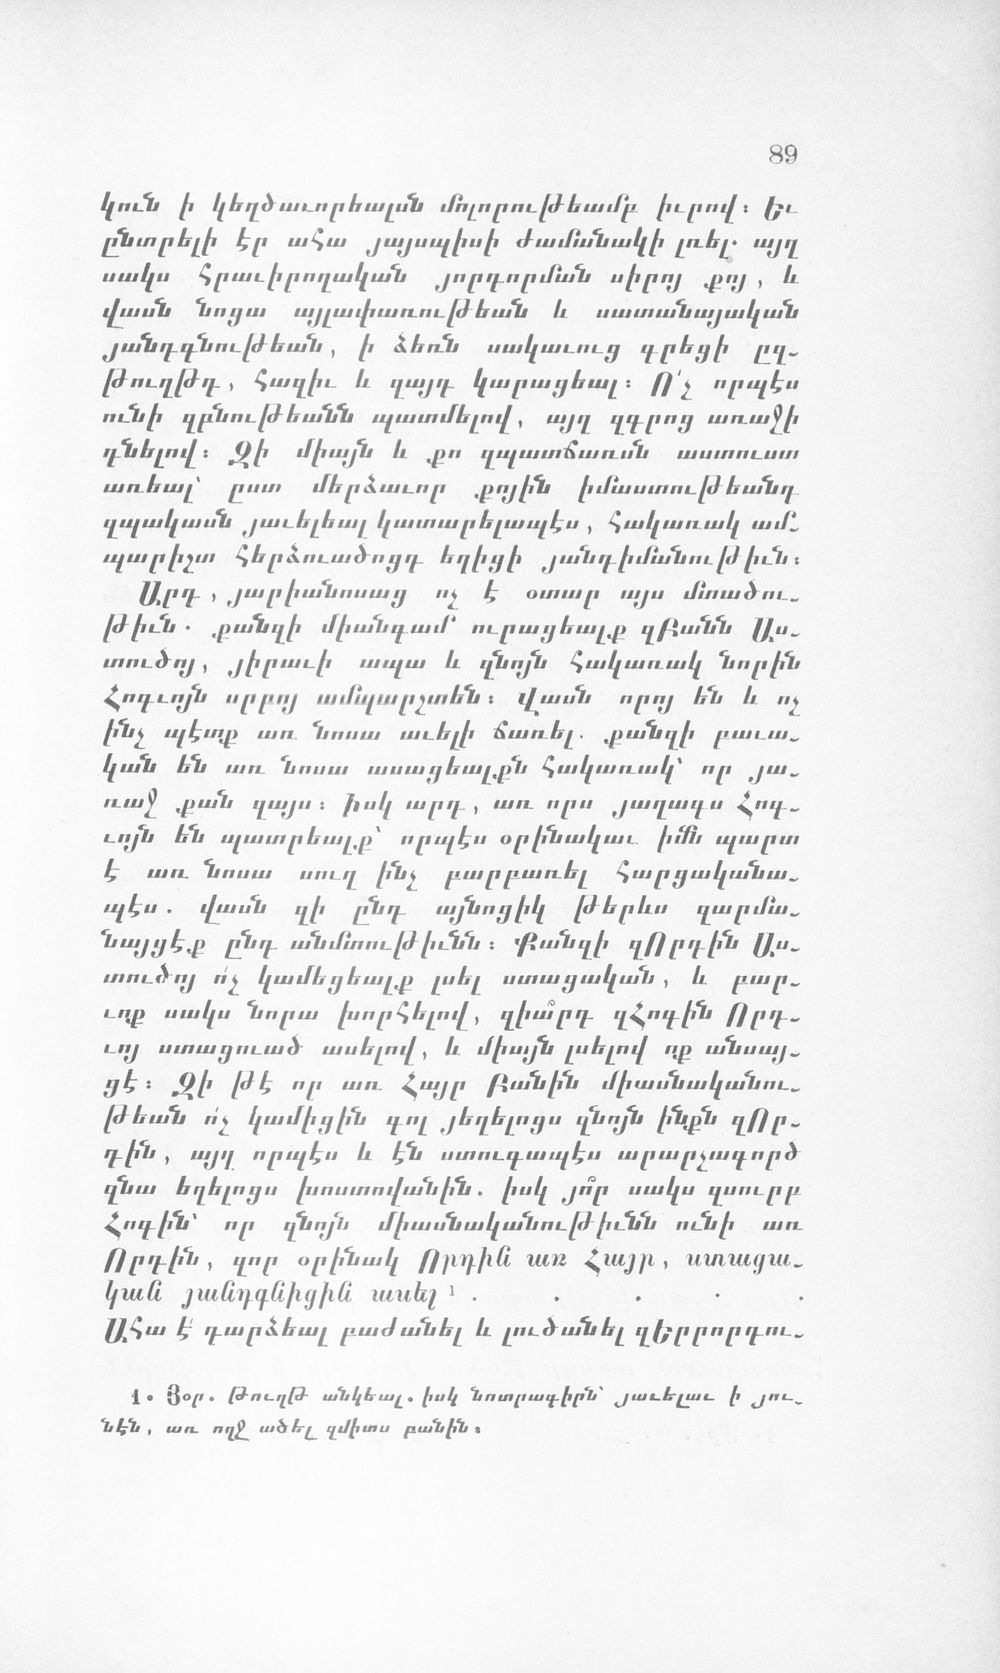 89
կուն ի կեղծաւորեալսն մոլորութեամբ իւրով։ Եւ
ընտրելի էր ահա յայսպիսի ժամանակի լռել· այղ
սակս հրաւիրողական յորդորման սիրոյ քոյ, և
վասն նոցա այլափառութեան և սատանայական
յանդգնութեան, ի ձեռն սակաւուց գրեցի ըզ֊
թուղթդ, հազիւ և զայդ կարացեալ։ Ո՛չ որպէս
ունի զբնութեանն պատմելով, այղ զգրոց առաջի
դնելով։ Զի միայն և քո զպատճառսն աստուստ
առեալ՝ ըստ մերձաւոր քոյին իմաստութեանդ
զպակասն յաւելեալ կատարելապէս, հակառակ ամ֊
պարիշտ հերձուածոցդ եղիցի յանդիմանութիւն։
Արդ, յարիանոսաց ոչ է օտար այս մտածու֊
թիւն· քանզի միանգամ ուրացեալք զԲանն Աս֊
տուծոյ, յիրաւի ապա և զնոյն հակառակ նորին
Հոգւոյն սրբոյ ամպարշտեն։ Վասն որոյ են և ոչ
ինչ պէտք առ նոսա աւելի ճառել. քանզի բաւա֊
կան են առ նոսա ասացեալքն հակառակ՝ որ յա֊
ռաջ քան զայս։ Իսկ արդ, առ որս յաղագս Հոգ֊
ւոյն են պատրեալք՝ որպէս օրինակաւ իմն պարտ
է առ նոսա սուղ ինչ բարբառել հարցականա֊
պէս. վասն զի ընդ այնոցիկ թերևս զարմա֊
նայցէք ընդ անմտութիւնն։ Քանզի զՈրդին Աս֊
տուծոյ ո՛չ կամեցեալք լսել ստացական, և բար֊
ւոք սակս նորա խորհելով, զիա՞րդ զՀոգին Որդ֊
ւոյ ստացուած ասելով, և միայն լսելով ոք անսայ֊
ցէ։ Զի թէ որ առ Հայր Բանին միասնականու֊
թեան ո՛չ կամիցին գոլ յեղելոցս զնոյն ինքն զՈր֊
դին, այղ որպէս և էն ստուգապէս արարչագործ
զնա եղելոցս խոստովանին. իսկ յո՞ր սակս զսուրբ
Հոգին՝ որ զնոյն միասնականութիւնն ունի առ
Որդին, զոր օրինակ Որդին առ Հայր, ստացա֊
կան յանդգնիցին ասել ¹ . . . . .
Ահա է դարձեալ բաժանել և լուծանել զԵրրորդու֊
1. Յօր. Թուղթ անկեալ. իսկ նոտրագիրն՝ յաւելաւ ի յու֊
նէն, առ ողջ ածել զմիտս բանին։